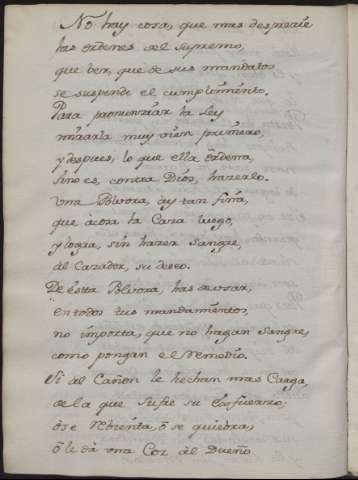 No hay cosa, que mas desprecie
las ordenes del supremo,
que ver, que de sus mandatos
se suspende el cumplimiento.
Para pronunziar la ley
mirarla muy vien primero,
y despues, lo que ella ordena,
sino es, contra Dios, hazerlo.
Una Polvora, ay tan fina,
que àcosa la Caza luego,
y logra, sin hazer Sangre,
al Cazador, su deseo.
De estta Polvora, has de usar,
en todos tus mandamientos,
no importa, que no hagan Sangre,
como pongan el Remedio.
Si al Cañon le hechan mas Carga,
de la que sufre su esfuerzo;
ò se rebienta, ò se quiebra,
ò le dà una Coz àl Dueño